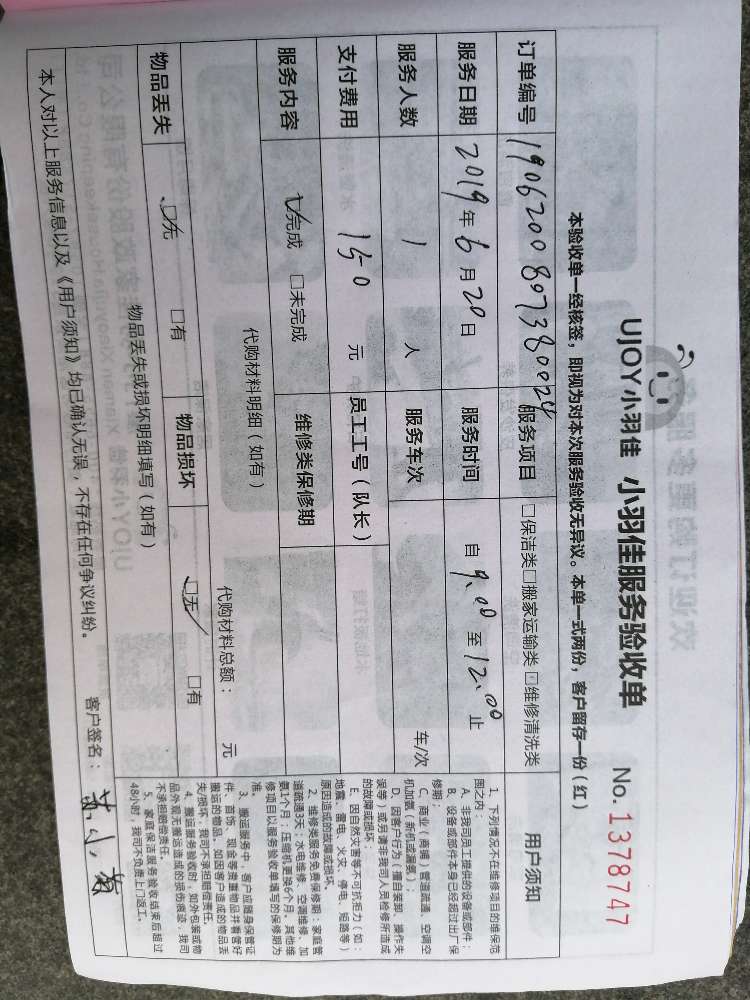 UJOY小羽佳 小羽佳服务验收单 No.1378747
本验收单一经核签，即视为对本次服务验收无异议。本单一式两份，客户留存一份（红）
订单编号 1906200897380024 服务项目 □保洁类□搬家运输类☑维修清洗类
服务日期 2019年6月20日 服务时间 自 9:00 至 12:00 止
服务人数 1 人 服务车次 车/次
支付费用 150 元 员工工号（队长）
服务内容 ☑完成 □未完成 维修类保修期
代购材料明细（如有） 代购材料总额： 元
物品丢失 ☑无 □有 物品损坏 ☑无 □有
物品丢失或损坏明细填写（如有）
本人对以上服务信息以及《用户须知》均已确认无误，不存在任何争议纠纷。 客户签名：
用户须知
1、下列情况不在维修项目的维保范
围之内：
A、非我司员工提供的设备或部件；
B、设备或部件本身已经超过出厂保
修期；
C、商业（商铺）管道疏通、空调空
机加氨（新机或漏氨）；
D、因客户行为（擅自装卸、操作失
误等）或另请非我司人员检修所造成
的故障或损坏；
E、因自然灾害等不可抗拒力（如：
地震、雷电、火灾、停电、短路等）
原因造成的故障或损坏。
2、维修类服务免费保修期：家庭管
道疏通3天；水电维修、空调维修、加
氨1个月；压缩机更换6个月。其他维
修项目以服务验收单填写的保修期为
准。
3、搬运服务中，客户应随身保管证
件、首饰、现金等贵重物品并看管好
搬运的物品。如因客户造成的物品丢
失/损坏，我司不承担赔偿责任。
4、搬运服务验收时，如外包装或物
品外观无搬运造成的损伤痕迹，我司
不承担赔偿责任。
5、家庭保洁服务验收结束后超过
48小时，我司不负责上门返工。